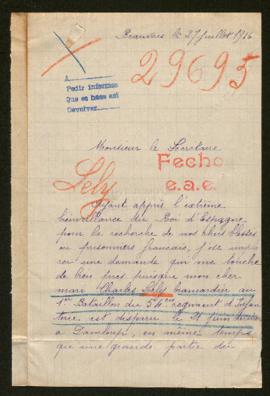 Beauvais le 27 juillet 1916
29695
A
Pedir informes
Que se hàse así
Devolver
Monsieur le Secrétaire
Fecho
e.a.e.
Lely
Ayant appris l'extrême
bienveillance du Roi d'Espagne
pour la recherche de nos chers blessés
ou prisonniers français, j'ose implo
rer une demande qui me touche
de bien près puisque mon cher
mari Charles Lely brancardier au
1er Bataillon du 54e régiment d'infan
terie, est disparu le 21 juin
à Damloup, en même temps
qu'une grande partie du